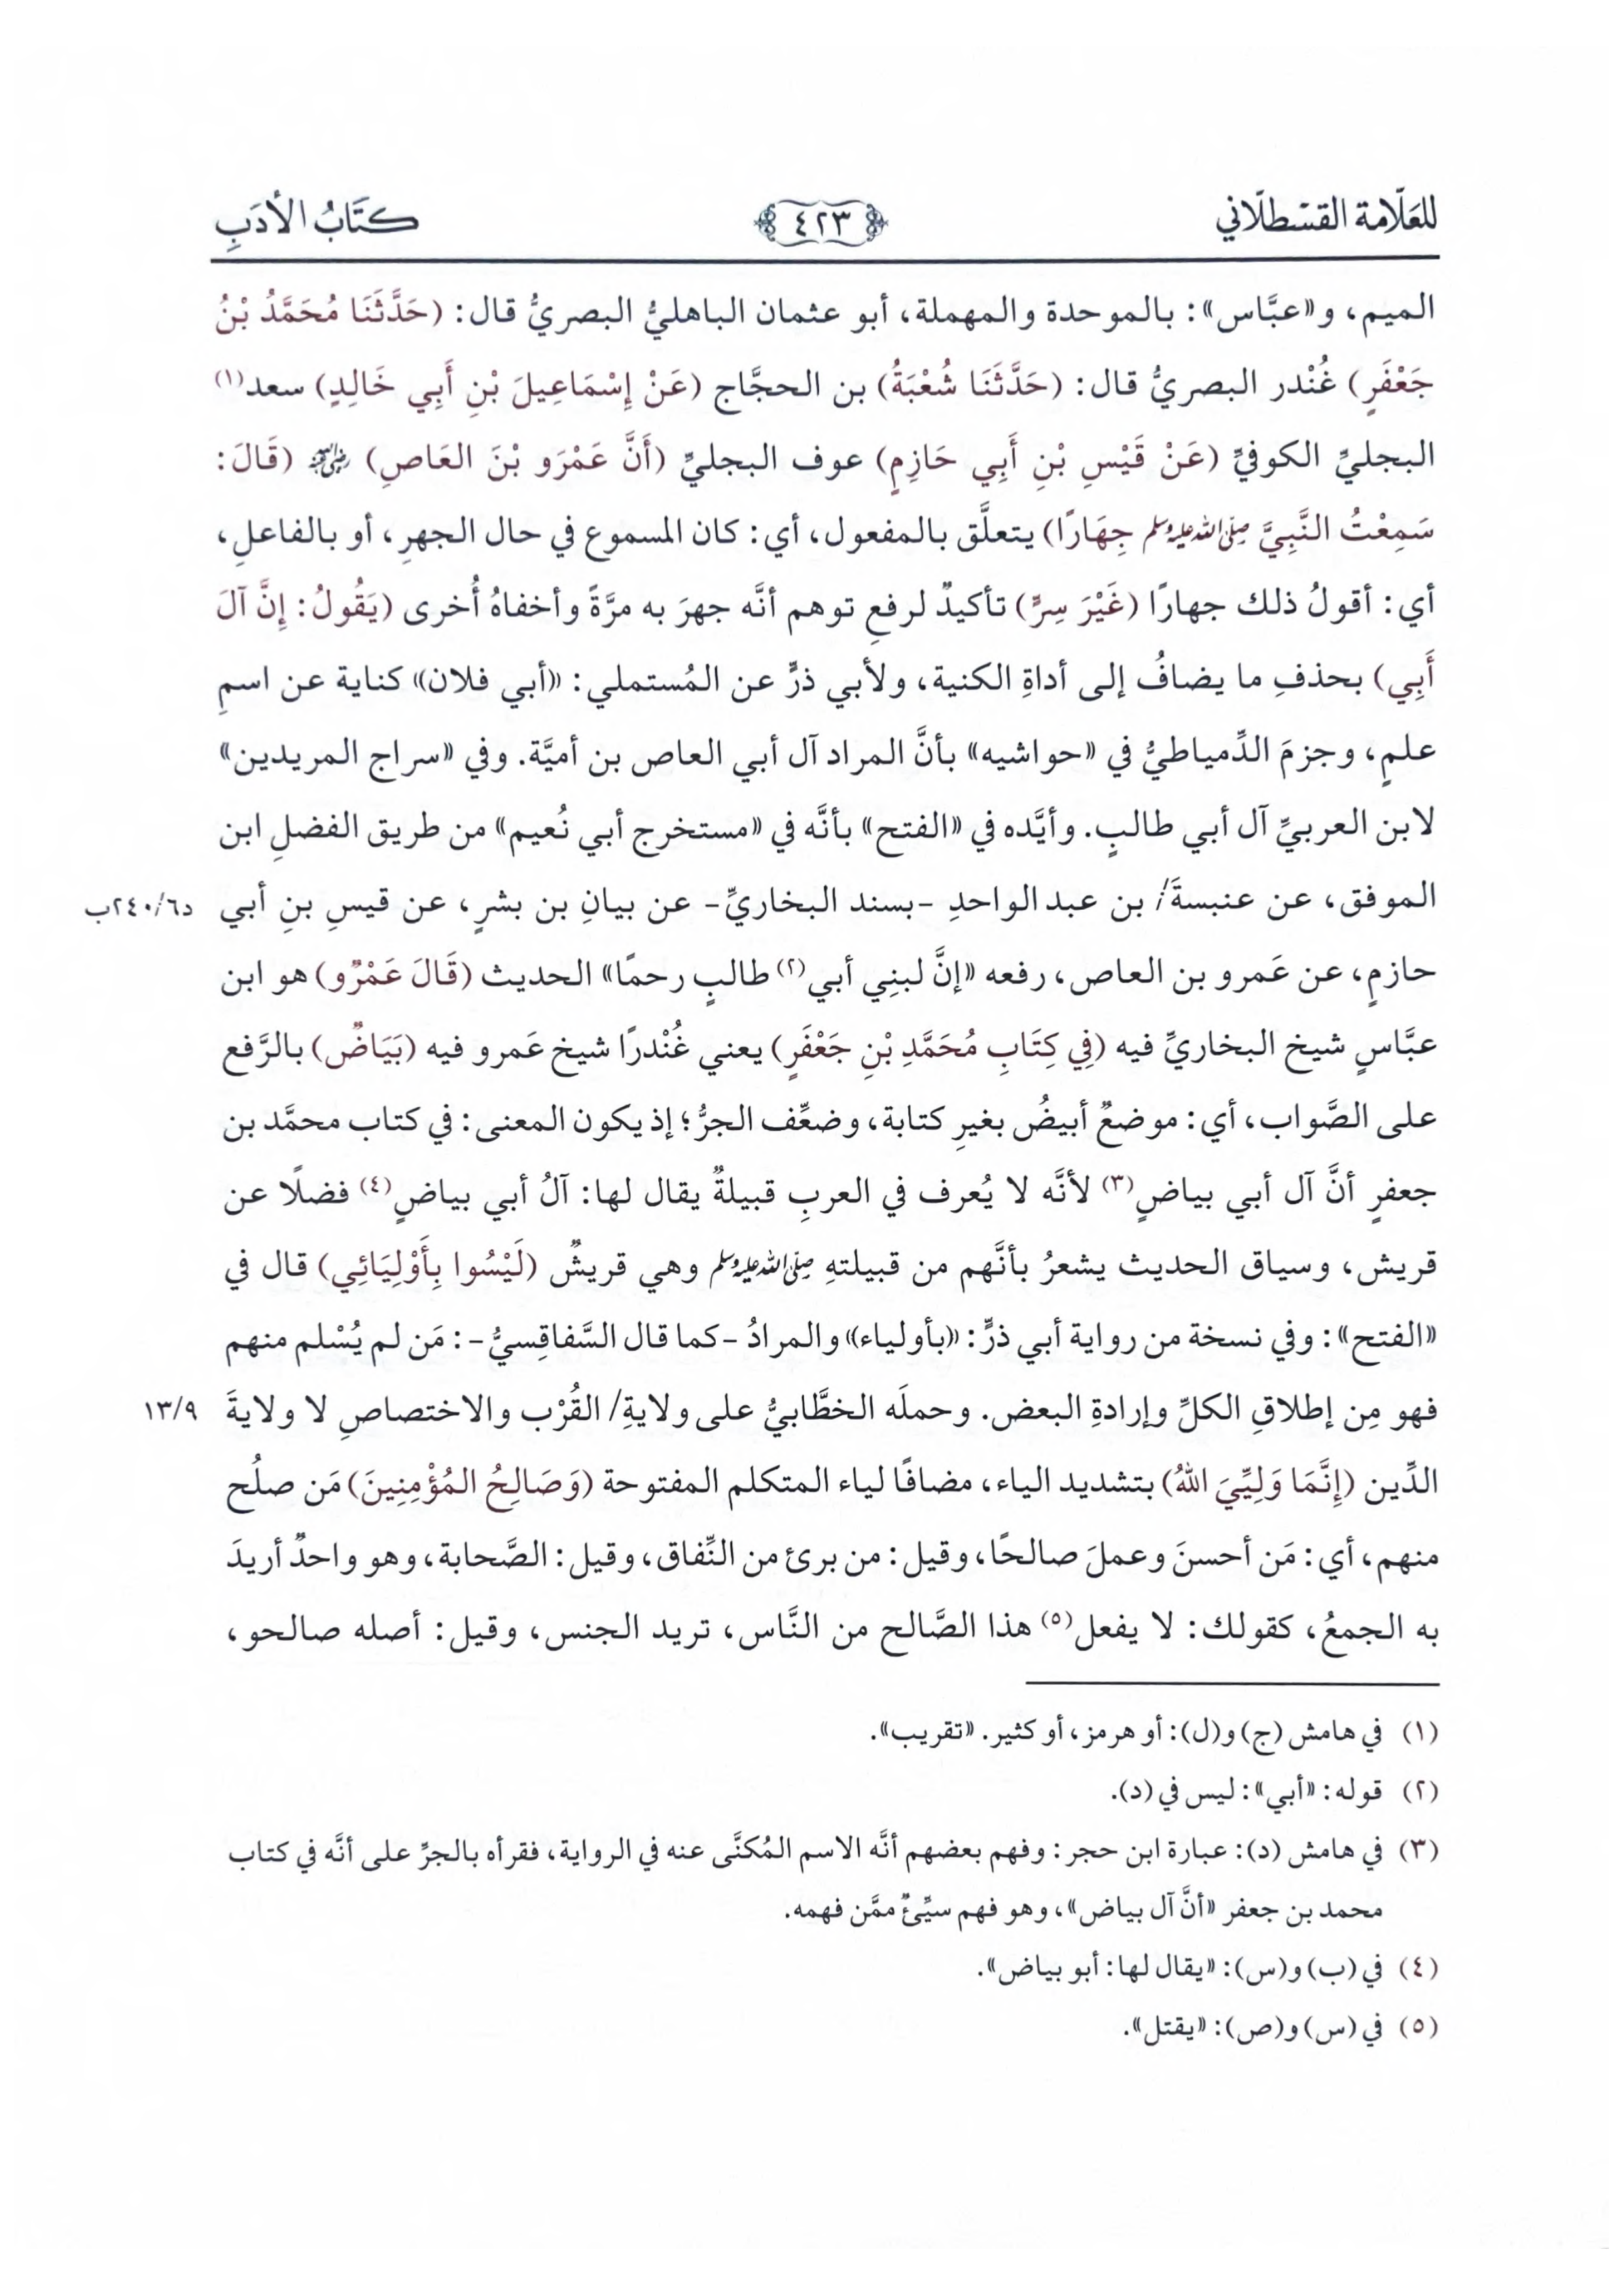 للعلّامة القسطلّاني
٤٢٣
كتَابُ الأدَبِ
الميم، و«عبَّاس»: بالموحدة والمهملة، أبو عثمان الباهليُّ البصريُّ قال: (حَدَّثَنَا مُحَمَّدُ بْنُ
جَعْفَرٍ) غُنْدر البصريُّ قال: (حَدَّثَنَا شُعْبَةُ) بن الحجَّاج (عَنْ إِسْمَاعِيلَ بْنِ أَبِي خَالِدٍ) سعد(١)
البجليِّ الكوفيِّ (عَنْ قَيْسِ بْنِ أَبِي حَازِمٍ) عوف البجليِّ (أَنَّ عَمْرَو بْنَ العَاصِ) ﵁ (قَالَ:
سَمِعْتُ النَّبِيَّ ﷺ جِهَارًا) يتعلَّق بالمفعول، أي: كان المسموع في حال الجهرِ، أو بالفاعلِ،
أي: أقولُ ذلك جهارًا (غَيْرَ سِرٍّ) تأكيدٌ لرفعِ توهم أنَّه جهرَ به مرَّةً وأخفاهُ أُخرى (يَقُولُ: إِنَّ آلَ
أَبِي) بحذفِ ما يضافُ إلى أداةِ الكنية، ولأبي ذرٍّ عن المُستملي: «أبي فلان» كناية عن اسمِ
علمٍ، وجزمَ الدِّمياطيُّ في «حواشيه» بأنَّ المراد آل أبي العاص بن أميَّة. وفي «سراج المريدين»
لابن العربيِّ آل أبي طالبٍ. وأيَّده في «الفتح» بأنَّه في «مستخرج أبي نُعيم» من طريق الفضلِ ابن
الموفق، عن عنبسةَ/ بن عبد الواحدِ -بسند البخاريِّ- عن بيانِ بن بشرٍ، عن قيسِ بنِ أبي
د٢٤٠/٦ب
حازمٍ، عن عَمرو بن العاص، رفعه «إنَّ لبنِي أبي(٢) طالبٍ رحمًا» الحديث (قَالَ عَمْرٌو) هو ابن
عبَّاسٍ شيخ البخاريِّ فيه (فِي كِتَابِ مُحَمَّدِ بْنِ جَعْفَرٍ) يعني غُنْدرًا شيخ عَمرو فيه (بَيَاضٌ) بالرَّفع
على الصَّواب، أي: موضعٌ أبيضُ بغيرِ كتابة، وضعِّف الجرُّ؛ إذ يكون المعنى: في كتاب محمَّد بن
جعفرٍ أنَّ آل أبي بياضٍ(٣) لأنَّه لا يُعرف في العربِ قبيلةٌ يقال لها: آلُ أبي بياضٍ(٤) فضلًا عن
قريش، وسياق الحديث يشعرُ بأنَّهم من قبيلتهِ ﷺ وهي قريشٌ (لَيْسُوا بِأَوْلِيَائِي) قال في
«الفتح»: وفي نسخة من رواية أبي ذرٍّ: «بأولياء» والمرادُ -كما قال السَّفاقِسيُّ-: مَن لم يُسْلم منهم
فهو مِن إطلاقِ الكلِّ وإرادةِ البعض. وحملَه الخطَّابيُّ على ولايةِ/ القُرْب والاختصاصِ لا ولايةَ
١٣/٩
الدِّين (إِنَّمَا وَلِيِّيَ اللهُ) بتشديد الياء، مضافًا لياء المتكلم المفتوحة (وَصَالِحُ المُؤْمِنِينَ) مَن صلُح
منهم، أي: مَن أحسنَ وعملَ صالحًا، وقيل: من برئ من النِّفاق، وقيل: الصَّحابة، وهو واحدٌ أريدَ
به الجمعُ، كقولك: لا يفعل(٥) هذا الصَّالح من النَّاس، تريد الجنس، وقيل: أصله صالحو،
(١) في هامش (ج) و(ل): أو هرمز، أو كثير. «تقريب».
(٢) قوله: «أبي»: ليس في (د).
(٣) في هامش (د): عبارة ابن حجر: وفهم بعضهم أنَّه الاسم المُكنَّى عنه في الرواية، فقرأه بالجرِّ على أنَّه في كتاب
محمد بن جعفر «أنَّ آل بياض»، وهو فهم سيِّئٌ ممَّن فهمه.
(٤) في (ب) و(س): «يقال لها: أبو بياض».
(٥) في (س) و(ص): «يقتل».